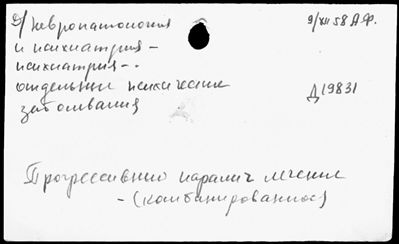 Д/невропатология
9/XII 58 А.Ф.
и психиатрия –
психиатрия – .
отдельные психические
Д 19831
заболевания
Прогрессивный паралич лечение
– (комбинированное)